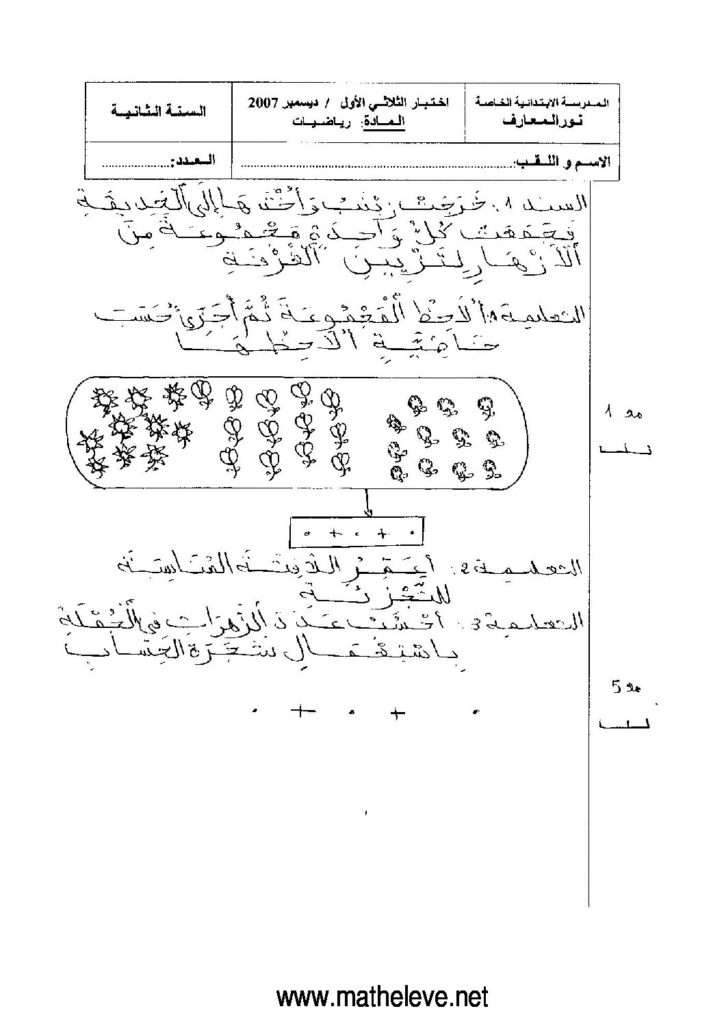 المدرسة الابتدائية الخاصة
نور المعارف
اختبار الثلاثي الأول / ديسمبر 2007
المادة: رياضيات
السنة الثانية
الاسم و اللقب:........................................
العدد:..................
السند 1: خَرَجَتْ زَيْنَبُ وَأُخْتُهَا إِلَى الْحَدِيقَةِ
فَجَمَعَتْ كُلُّ وَاحِدَةٍ مَجْمُوعَةً مِنَ
الْأَزْهَارِ لِتَزْيِينِ الْغُرْفَةِ
التعليمة 1: أُلَاحِظُ الْمَجْمُوعَةَ ثُمَّ أُجَزِّئُ حَسَبَ
خَاصِّيَّةٍ أُلَاحِظُهَا
مع 1
. + . + .
التعليمة 2: أُعَمِّرُ اللَّافِتَةَ الْمُنَاسِبَةَ
لِلتَّجْزِئَةِ
التعليمة 3: أَحْسُبُ عَدَدَ الزَّهَرَاتِ فِي الْجُمْلَةِ
بِاسْتِعْمَالِ شَجَرَةِ الْحِسَابِ
مع 5
. + . + .
www.matheleve.net